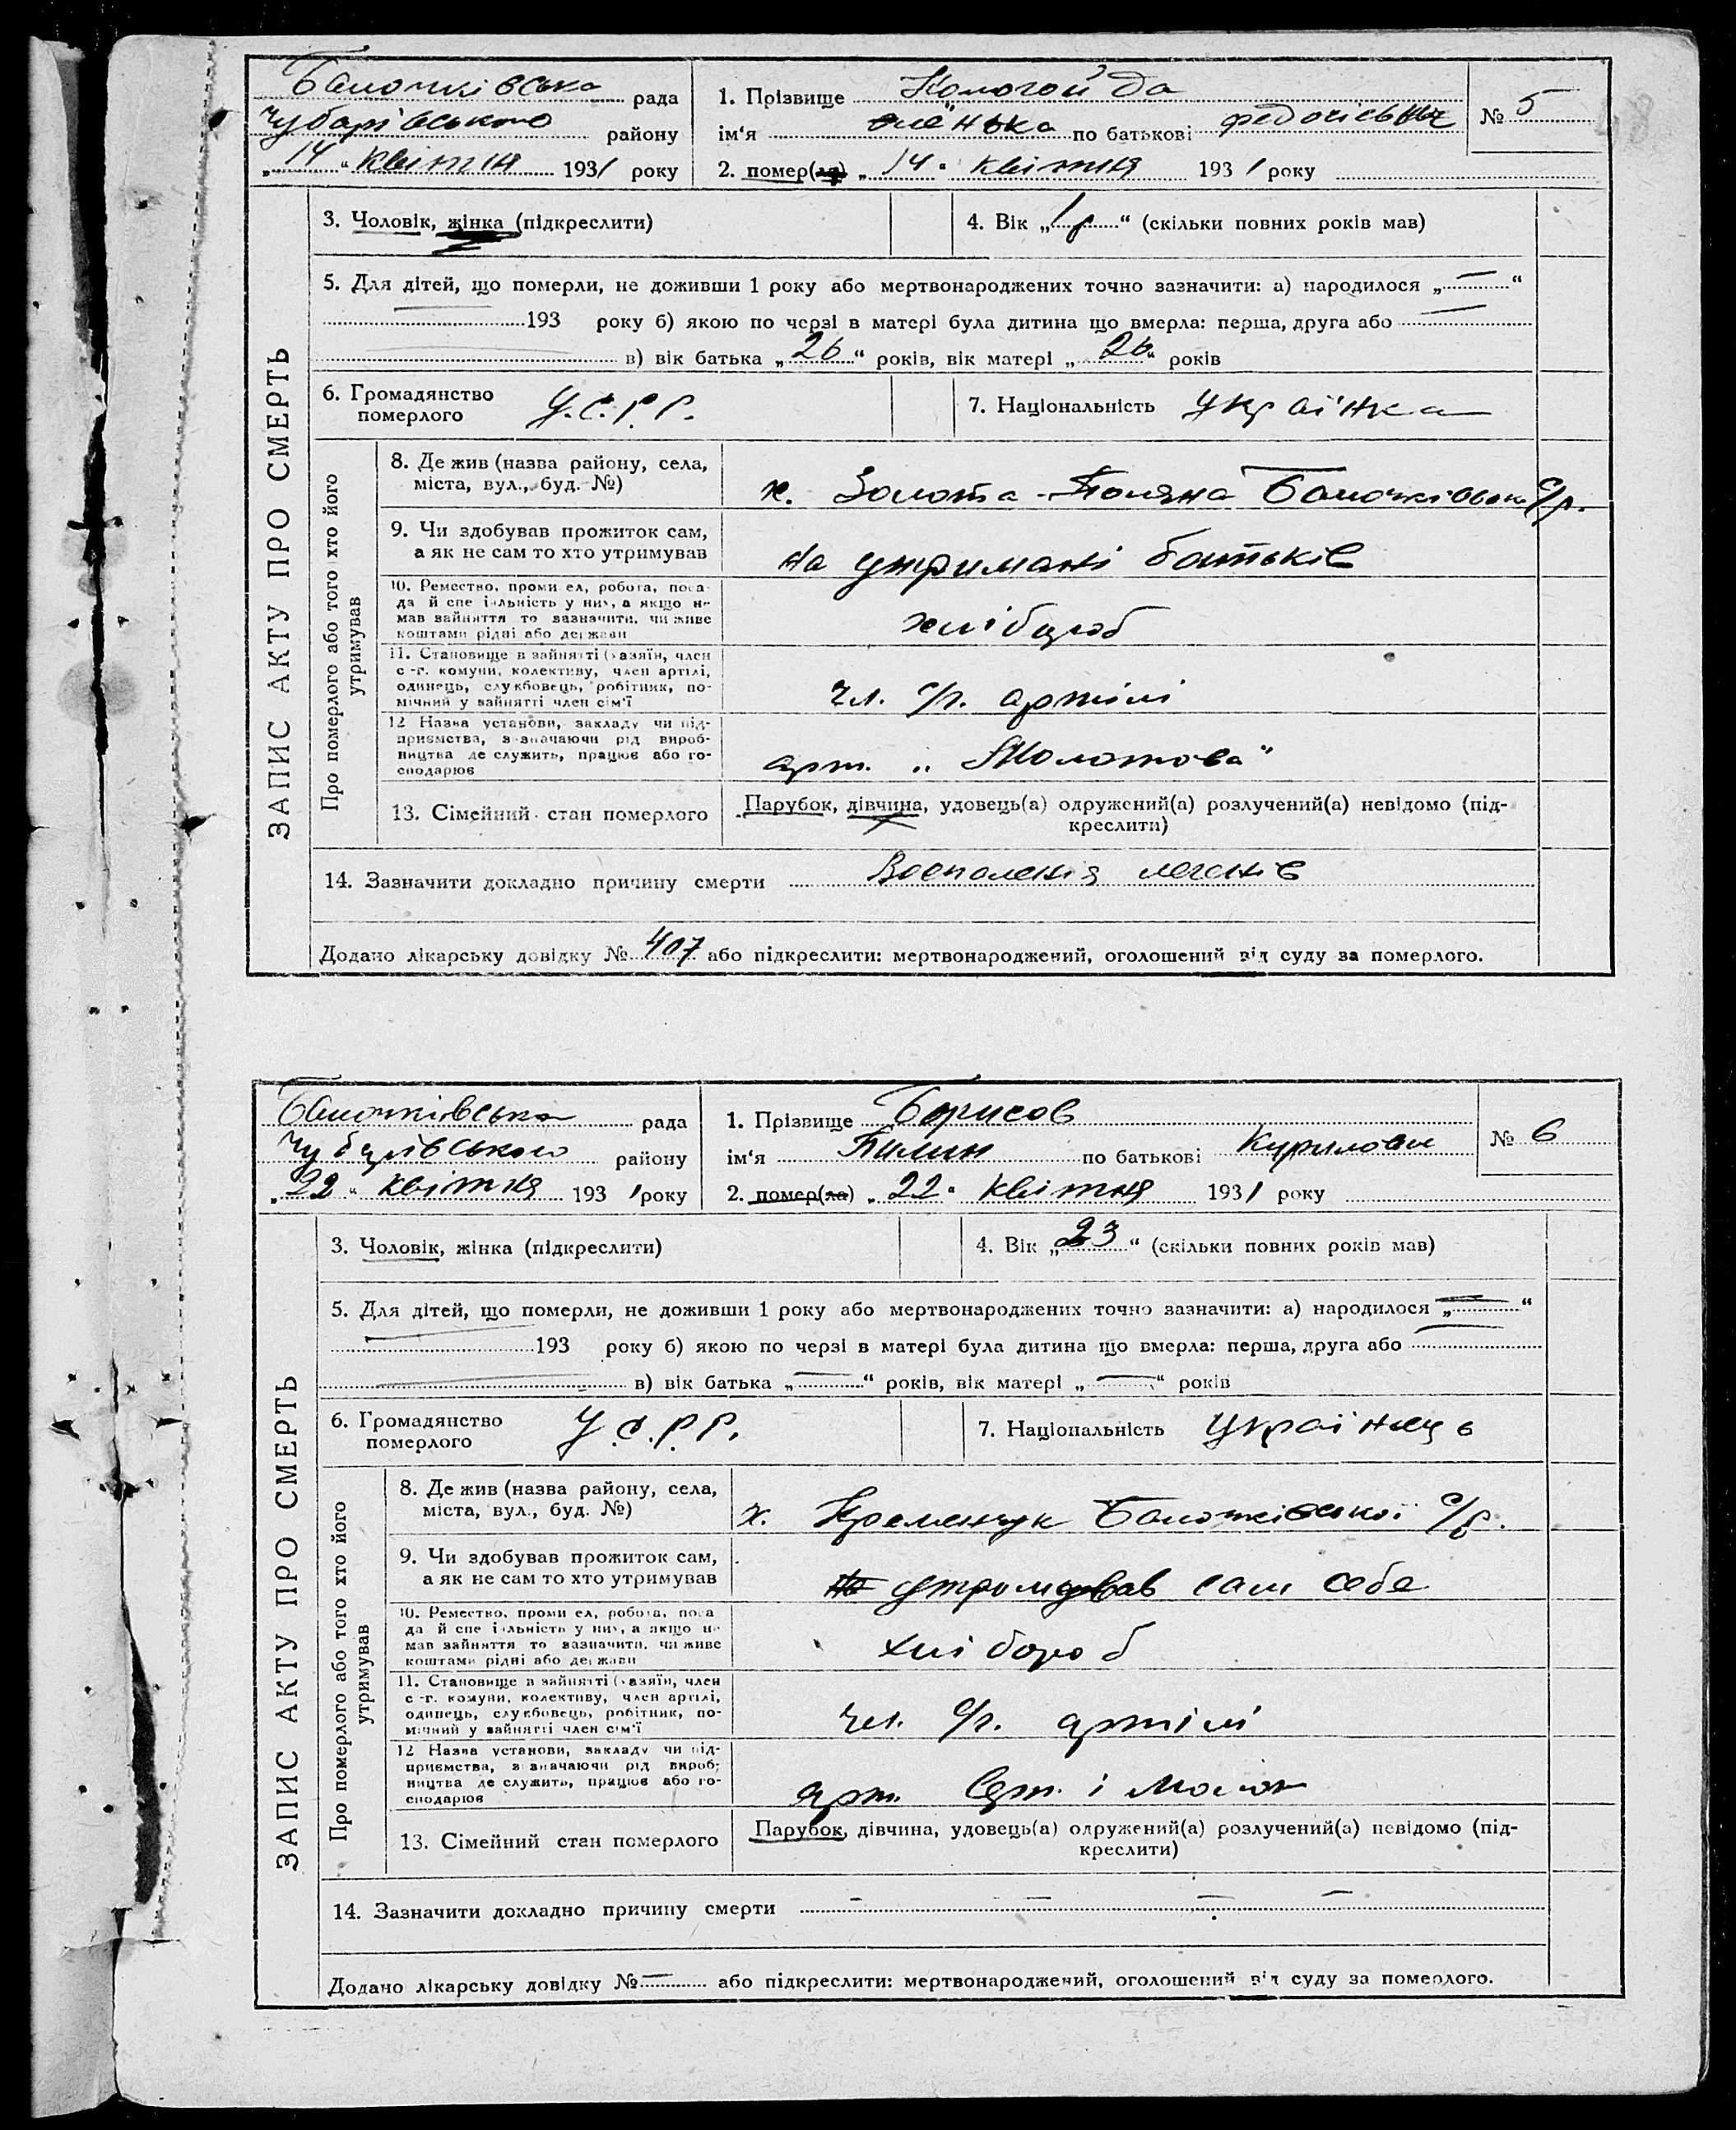 Балочківська рада
Чубарівського району
„14“ квітня 1931 року
1. Прізвище Кологойда
ім‘я Оленька по батькові
2. помер(ла) „14“ квітня 1931 року
№ 5
ЗАПИС АКТУ ПРО СМЕРТЬ
3. Чоловік, жінка (підкреслити)
4. Вік „1 р“ (скільки повних років мав)
5. Для дітей, що померли, не доживши 1 року або мертвонароджених точно зазначити: а) народилося „—“
193 року б) якою по черзі в матері була дитина що вмерла: перша, друга або —
в) вік батька „26“ років, вік матері „26“ років
6. Громадянство
померлого
У.С.Р.Р.
7. Національність Українка
Про померлого або того хто його
утримував
8. Де жив (назва району, села,
міста, вул., буд. №)
х. Золота-Поляна Балочківської с/р.
9. Чи здобував прожиток сам,
а як не сам то хто утримував
На утримані батьків
10. Ремество, проми ел, робота, поса-
да й спе іальність у них, а якщо не
мав зайняття то зазначити, чи живе
коштами рідні або держави
хлібороб
11. Становище в зайнятті (хазяїн, член
с-г. комуни, колективу, член артілі,
одинець, службовець, робітник, по-
мічний у зайнятті член сім‘ї
чл. с/г. артілі
12 Назва установи, закладу чи під-
приємства, зазначаючи рід вироб-
ництва де служить, працює або го-
сподарює
арт. „Молотова“
13. Сімейний стан померлого
Парубок, дівчина, удовець(а) одружений(а) розлучений(а) невідомо (під-
креслити)
14. Зазначити докладно причину смерти Воспаленія легенів
Додано лікарську довідку № 407 або підкреслити: мертвонароджений, оголошений від суду за померлого.
Балочківська рада
Чубарівського району
„22“ квітня 1931 року
1. Прізвище Борисов
ім‘я Пилип по батькові Курилович
2. помер(ла) „22“ квітня 1931 року
№ 6
ЗАПИС АКТУ ПРО СМЕРТЬ
3. Чоловік, жінка (підкреслити)
4. Вік „23“ (скільки повних років мав)
5. Для дітей, що померли, не доживши 1 року або мертвонароджених точно зазначити: а) народилося „—“
193 року б) якою по черзі в матері була дитина що вмерла: перша, друга або —
в) вік батька „—“ років, вік матері „—“ років
6. Громадянство
померлого
У.С.Р.Р.
7. Національність Українець
Про померлого або того хто його
утримував
8. Де жив (назва району, села,
міста, вул., буд. №)
х. Кременчук Балочківської с/р.
9. Чи здобував прожиток сам,
а як не сам то хто утримував
На утримував сам себе
10. Ремество, проми ел, робота, поса
да й спе іальність у них, а якщо не
мав зайняття то зазначити, чи живе
коштами рідні або держави
хлібороб
11. Становище в зайнятті (хазяїн, член
с-г. комуни, колективу, член артілі,
одинець, службовець, робітник, по-
мічний у зайнятті член сім‘ї
чл. с/г. артілі
12 Назва установи, закладу чи під-
приємства, зазначаючи рід вироб-
ництва де служить, працює або го-
сподарює
арт. Серп. і Молот
13. Сімейний стан померлого
Парубок, дівчина, удовець(а) одружений(а) розлучений(а) невідомо (під-
креслити)
14. Зазначити докладно причину смерти — — — —
Додано лікарську довідку № — або підкреслити: мертвонароджений, оголошений від суду за померлого.